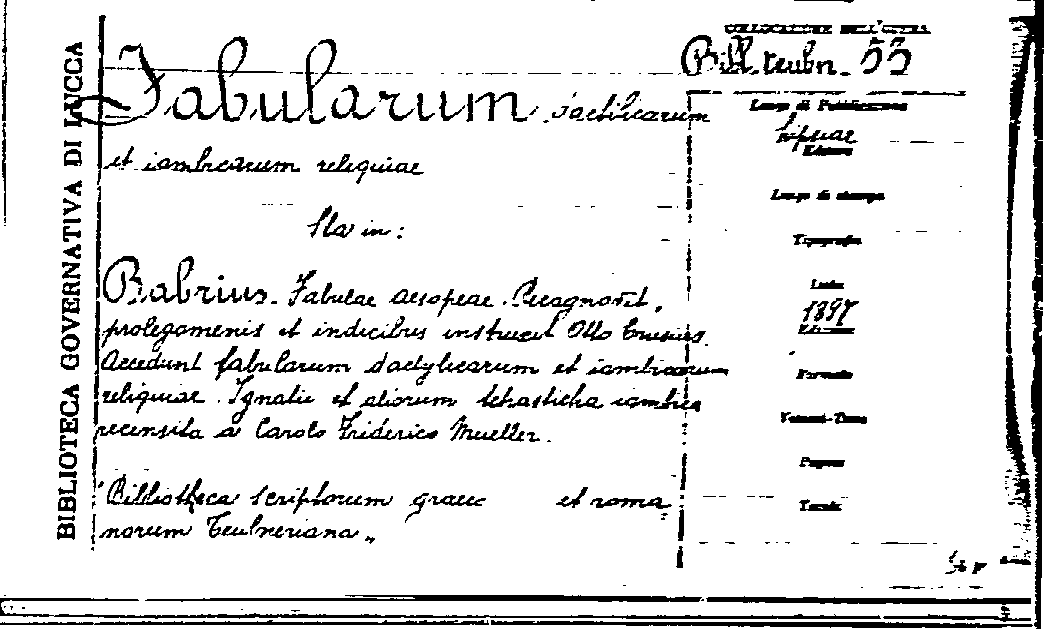 BIBLIOTECA GOVERNATIVA DI LUCCA
COLLOCAZIONE DELL'OPERA
Bibl. teubn. 53
Fabularum dactilicarum
et iambicarum reliquiae
Sta in:
Babrius. Fabulae aesopeae. Recognovit,
prolegomenis et indicibus instruxit Otto Crusius.
Accedunt fabularum dactylicarum et iambicarum
reliquiae. Ignatii et aliorum tetrasticha iambica
recensita a Carolo Friderico Mueller.
"Bibliotheca scriptorum graec et roma
norum Teubneriana"
Luogo di Pubblicazione
Lipsiae
Editore
Luogo di stampa
Tipografia
1897
Formato
Pagine
Tavole